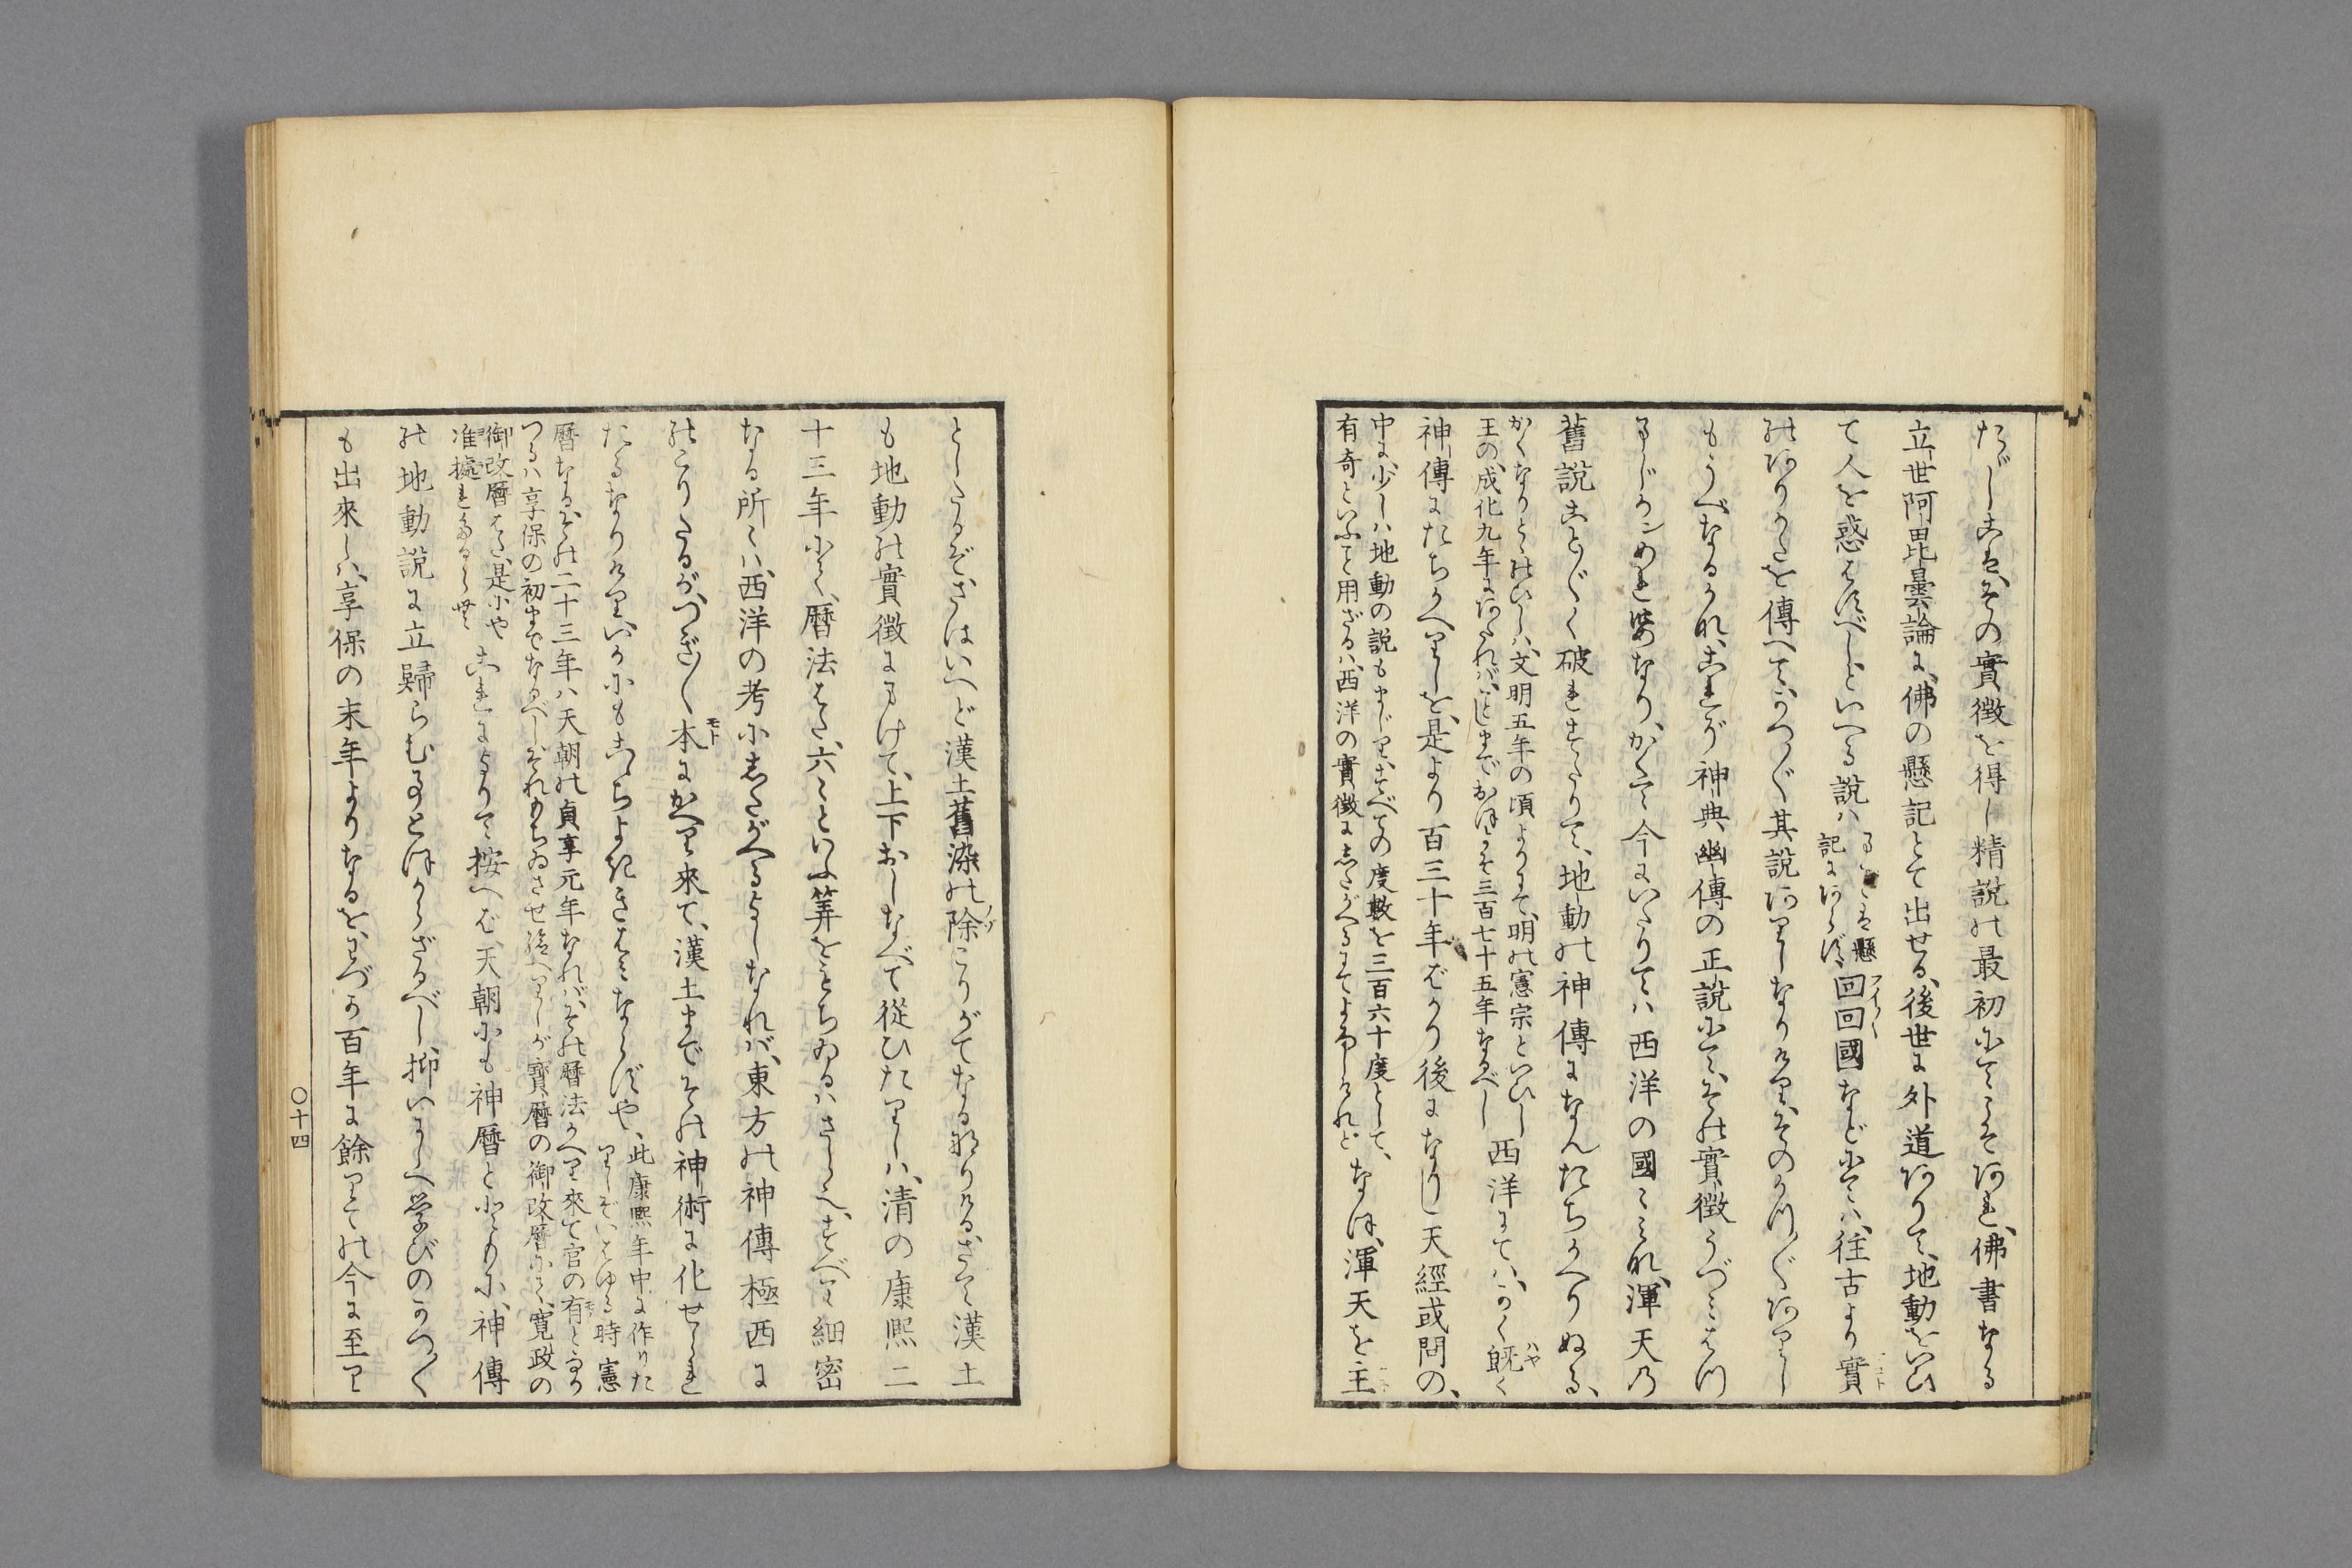 たゞしこは、その實徴を得し精説の最初にてこそあれ、佛書なる
立世阿毘曇論に、佛の懸記とて出せる、後世に外道ありて、地動をいひ
て人を惑はすべしといへる説ハ
まことは懸
記にあらず、
回回國などにてハ、往古より實
のありかたを傳へて、かつ〴〵其説ありしなりけり、そのかつ〴〵ありし
もうべなるかれ、これが神典幽傳の正説にて、その實徴うづみはつ
まじかンめれ婆なり、かくて今にいたりてハ西洋の國々みな、渾天乃
舊説ことごとく破れはたりて、地動の神傳になんたちかへりぬる、
かくなりとゝのひしハ、文明五年の頃よりにて、明の憲宗といひし
王の、成化九年にあたれバ、ことしまでおほよそ三百七十五年なるべし
西洋にてハ、かく既く
神傳にたちかへりしを、是より百三十年ばかり後になりし天經或問の、
中に、少しハ地動の説もまじり、すべての度數を三百六十度として、
有奇といふを用ざるハ、西洋の實徴にしたがへるにてよろしけれど
なほ、渾天を主
としたるぞ、さはいへど漢土舊染の除こりがてなる那りける、さて漢土
も地動の實徴にまけて、上下おしなべて從ひたりしハ、清の康熙二
十三年にて、暦法はた、六々といふ筭をもちゐるハさらへ、すべて細密
なる所々ハ、西洋の考にしたがへるよしなれバ、東方の神傳極西に
のこりたるが、つぎ〳〵本にかへり來て、漢土までその神術に化せられ
たるなりけり、いかにもこゝちよききはみならずや、
此康熙年中に作りた
りしぞいはゆる時憲
暦なるぞの二十三年ハ天朝の貞享元年なれバ、その暦法かへり來て官の有となり
つるハ享保の初までなるべしそれもちゐさせ給へりしが寶暦の御改暦にて、寛政の
御改暦はた、是にや
准據れたるらむ
これによりて按へば、天朝にも神暦とひとしきに、神傳
の地動説に立歸らむまとほからざるべし、抑いにしへ學びのかつ〴〵
も出來しハ、享保の末年よりなるを、わづか百年に餘りての今に至り
〇十四